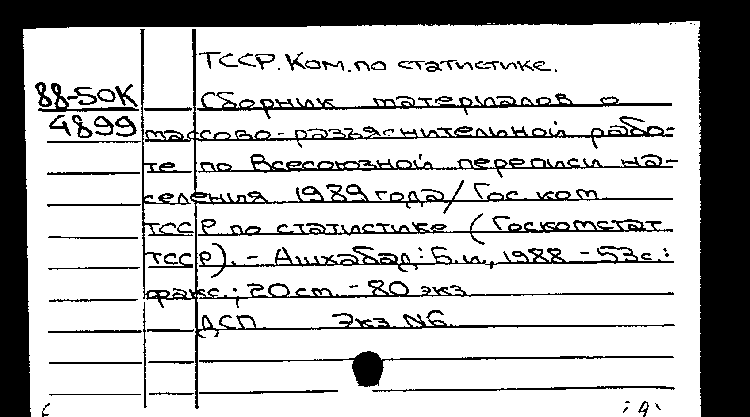 ТССР. Ком. по статистике.
88-50К
Сборник материалов о
4899
массово-разъяснительной рабо-
те по Всесоюзной переписи на-
селения 1989 года / Гос. ком.
ТССР по статистике (Госкомстат
ТССР). - Ашхабад: Б.и., 1988 - 53с.:
факс.; 20 см. - 80 экз
ДСП. Экз N6